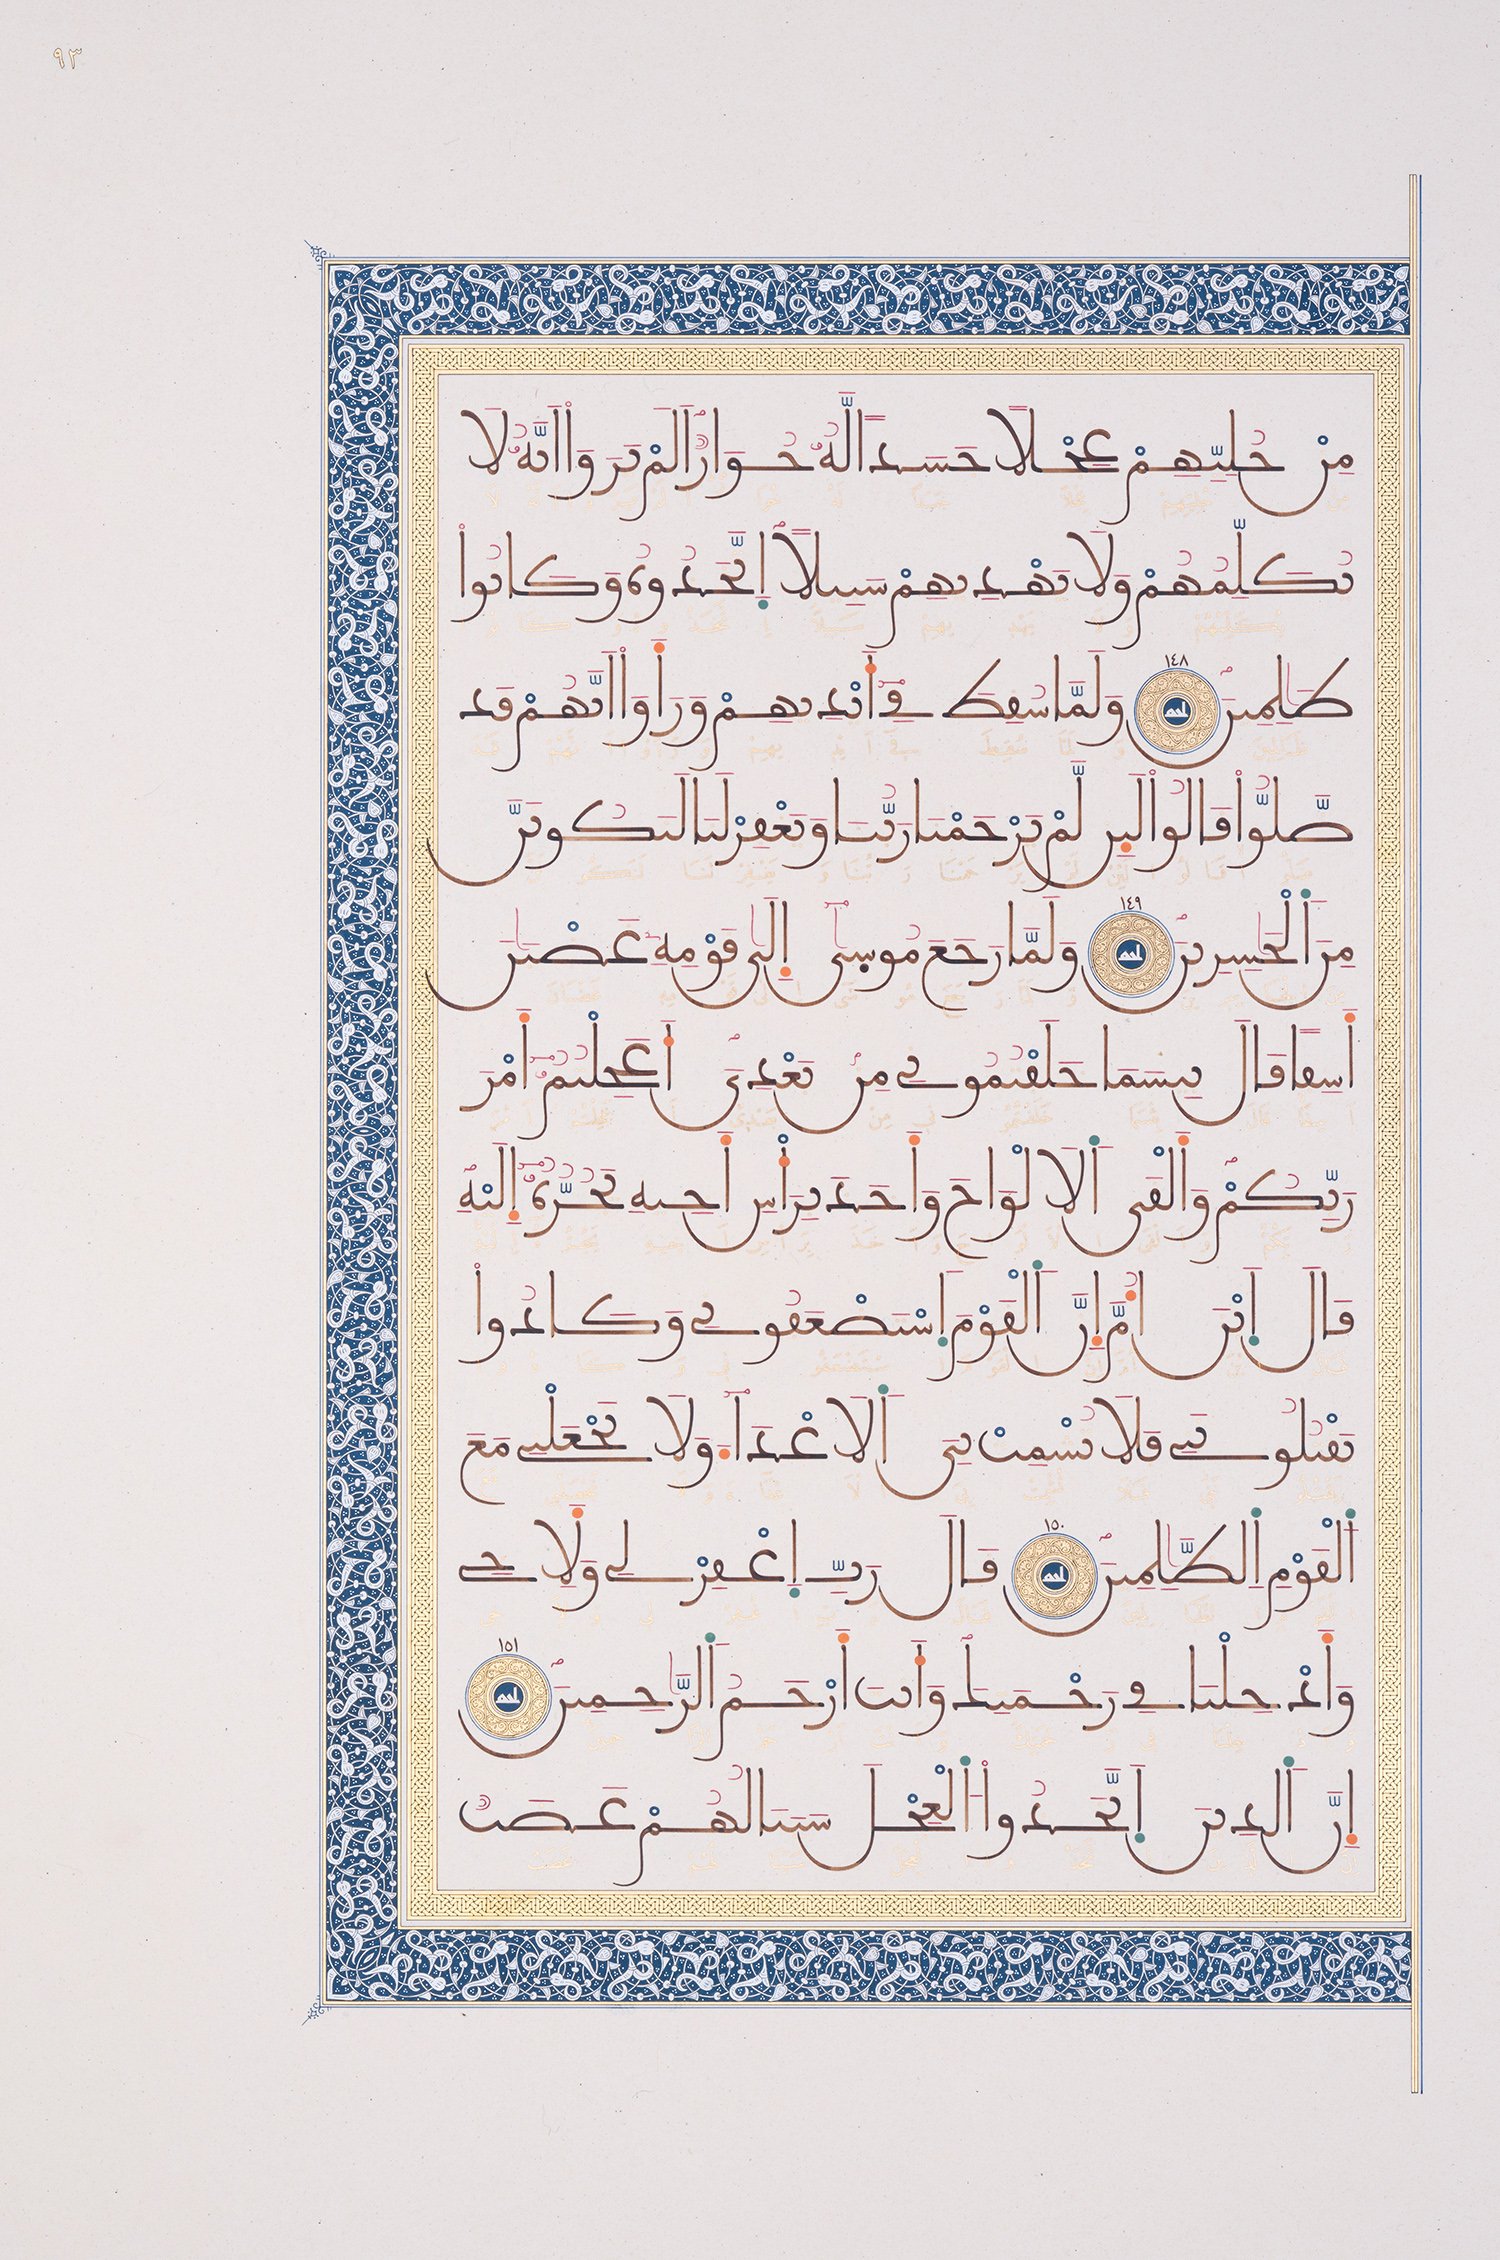 ٩٣
مِنْ حُلِيِّهِمْ عِجْلًا جَسَدًا لَّهُ خُوَارٌ أَلَمْ يَرَوْا أَنَّهُ لَا
يُكَلِّمُهُمْ وَلَا يَهْدِيهِمْ سَبِيلًا اِتَّخَذُوهُ وَكَانُوا
ظَٰلِمِينَ ١٤٨ وَلَمَّا سُقِطَ فِي أَيْدِيهِمْ وَرَأَوْا أَنَّهُمْ قَد
ضَّلُّوا قَالُوا لَئِن لَّمْ يَرْحَمْنَا رَبُّنَا وَيَغْفِرْ لَنَا لَنَكُونَنَّ
مِنَ اَلْخَٰسِرِينَ ١٤٩ وَلَمَّا رَجَعَ مُوسَىٰ إِلَىٰ قَوْمِهِ غَضْبَٰنَ
أَسِفًا قَالَ بِيسَمَا خَلَفْتُمُونِي مِنۢ بَعْدِيَ أَعَجِلْتُمُ أَمْرَ
رَبِّكُمْ وَأَلْقَى اَلْأَلْوَاحَ وَأَخَذَ بِرَأْسِ أَخِيهِ يَجُرُّهُ إِلَيْهِ
قَالَ اَبْنَ أُمَّ إِنَّ اَلْقَوْمَ اَسْتَضْعَفُونِي وَكَادُوا
يَقْتُلُونَنِي فَلَا تُشْمِتْ بِيَ اَلْأَعْدَآءَ وَلَا تَجْعَلْنِي مَعَ
اَلْقَوْمِ اِلظَّٰلِمِينَ ١٥٠ قَالَ رَبِّ اِغْفِرْ لِي وَلِأَخِي
وَأَدْخِلْنَا فِي رَحْمَتِكَ وَأَنتَ أَرْحَمُ اُلرَّٰحِمِينَ ١٥١
إِنَّ اَلذِينَ اَتَّخَذُوا اُلْعِجْلَ سَيَنَالُهُمْ غَضَبٌ